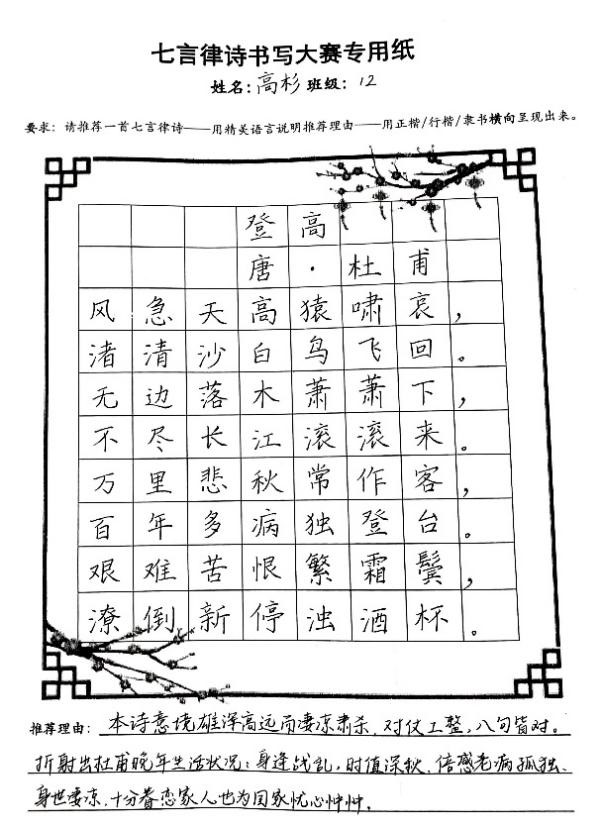 七言律诗书写大赛专用纸
姓名:高杉 班级:12
要求:请推荐一首七言律诗——用精美语言说明推荐理由——用正楷/行楷/隶书横向呈现出来。
登高
唐·杜甫
风急天高猿啸哀,
渚清沙白鸟飞回。
无边落木萧萧下,
不尽长江滚滚来。
万里悲秋常作客,
百年多病独登台。
艰难苦恨繁霜鬓,
潦倒新停浊酒杯。
推荐理由:本诗意境雄浑高远而凄凉肃杀,对仗工整,八句皆对。
折射出杜甫晚年生活状况:身逢战乱,时值深秋,倍感老病孤独、
身世凄凉,十分眷恋家人也为国家忧心忡忡。